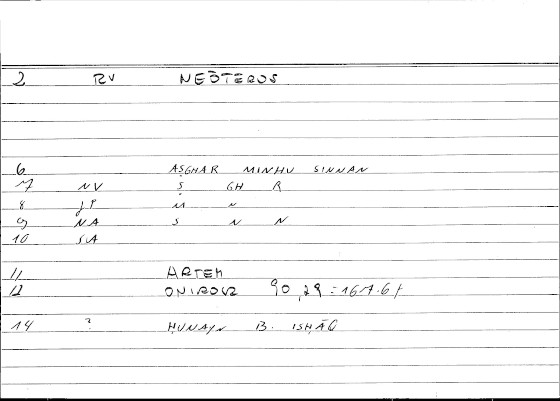 2 RV NEŌTEROS
6 AṢGHAR MINHU SINNAN
7 NV Ṣ GH R
8 JP M N
9 NA S N N
10 SA
11 ARTEM
12 ONIROCR 90,29 = 167.61
14 ? ḤUNAYN B. ISḤĀQ